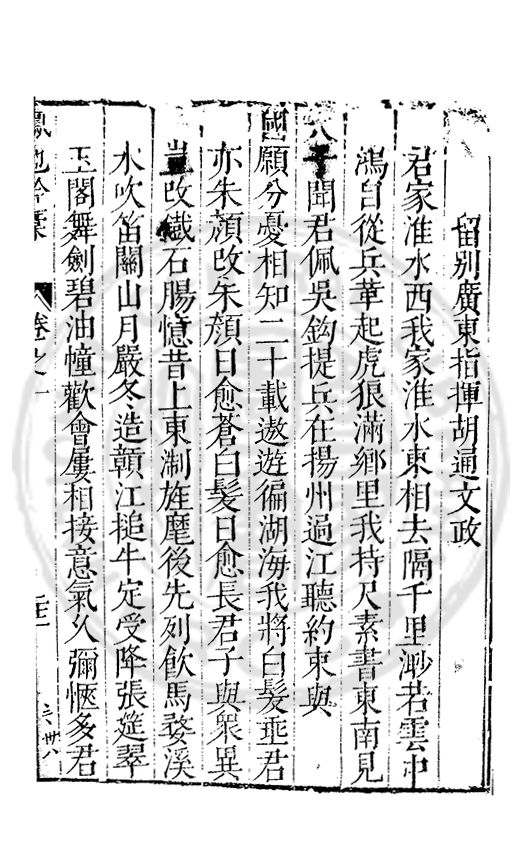 留别廣東指揮胡通文政
君家淮水西我家淮水東相去隔千里渺若雲中
鴻自從兵革起虎狼滿鄉里我持尺素書東南見
天子聞君佩吳鈎提兵在揚州過江聽約束與
國願分憂相知二十載遨遊徧湖海我將白髮垂君
亦朱顔改朱顔日愈蒼白髮日愈長君子與衆異
豈改鐵石腸憶昔上東淛旌麾後先列飲馬婺溪
水吹笛關山月嚴冬造贛江搥牛定受降張筵翠
玉閣舞劍碧油幢歡會屢相接意氣久彌愜多君
卷之一